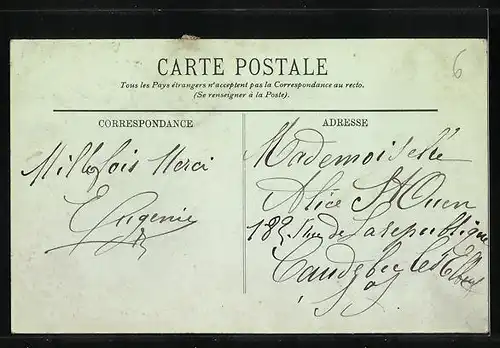 6
CARTE POSTALE
Tous les Pays étrangers n'acceptent pas la Correspondance au recto.
(Se renseigner à la Poste).
CORRESPONDANCE
ADRESSE
Mille fois Merci
Eugenie
Mademoiselle
Alice St Ouen
183 Rue de La republique
Caudebec les Elbeuf